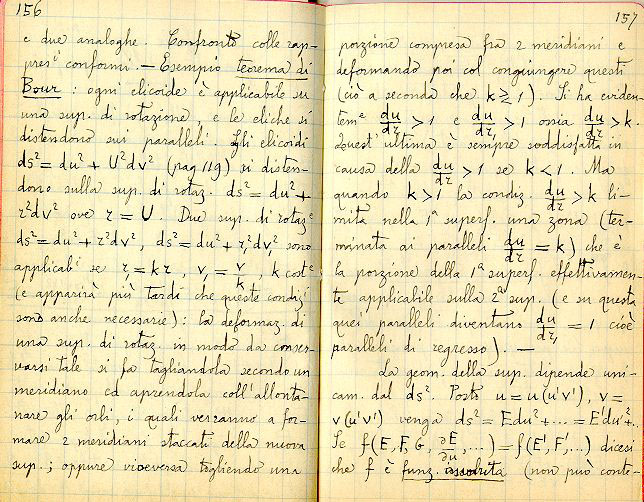 156
e due analoghe. Confronto colle rap-
pres<sup>i</sup> conformi. — Esempio teorema di
Bour : ogni elicoide è applicabile su
una sup. di rotazione, e le eliche si
distendono sui paralleli. Gli elicoidi
ds² = du² + U²dv² (pag 119) si disten-
dono sulla sup. di rotaz. ds² = du² +
r²dv² ove r = U. Due sup. di rotaz<sup>e</sup>
ds² = du² + r²dv², ds² = du² + r₁²dv₁² sono
applicab<sup>i</sup> se r = kr₁, v₁ = v/k, k cost<sup>e</sup>
(e apparirà più tardi che queste condiz<sup>i</sup>
sono anche necessarie): la deformaz. di
una sup. di rotaz. in modo da conser-
varsi tale si fa tagliandola secondo un
meridiano ed aprendola coll'allonta-
nare gli orli, i quali verranno a for-
mare 2 meridiani staccati della nuova
sup.; oppure viceversa togliendo una
157
porzione compresa fra 2 meridiani e
deformando poi col congiungere questi
(ciò a seconda che k ≷ 1). Si ha eviden-
tem<sup>e</sup> du/dr > 1 e du/dr₁ > 1 ossia du/dr > k.
Quest'ultima è sempre soddisfatta in
causa della du/dr > 1 se k < 1. Ma
quando k > 1 la condiz. du/dr > k li-
mita nella 1ª superf. una zona (ter-
minata ai paralleli du/dr = k) che è
la porzione della 1ª superf. effettivamen-
te applicabile sulla 2ª sup. (e su questa
quei paralleli diventano du/dr₁ = 1 cioè
paralleli di regresso). —
La geom. della sup. dipende uni-
cam. dal ds². Posto u = u(u'v'), v =
v(u'v') venga ds² = Edu² + ... = E'du'² + ..
Se f(E, F, G, ∂E/∂u, ...) = f(E', F', ...) dicesi
che f è funz. assoluta (non può conte-